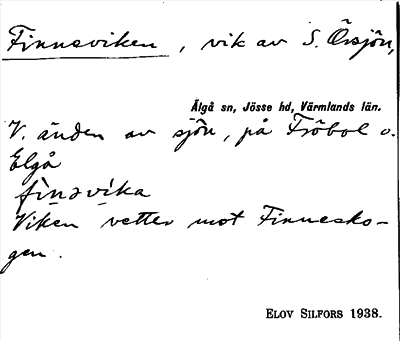 Finneviken, vik av S. Örsjön,
Älgå sn, Jösse hd, Värmlands län.
V. änden av sjön, på Fröbol o.
Elgå
fìnəvíka
Viken vetter mot Finnesko-
gen.
ELOV SILFORS 1938.